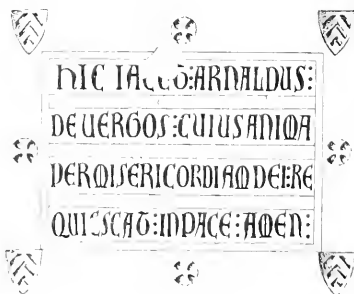 HIC IACET:ARNALDUS:
DEUERGOS:CUIUSANIMA
PERMISERICORDIAMDEI:RE
QUIESCAT:INPACE:AMEN: